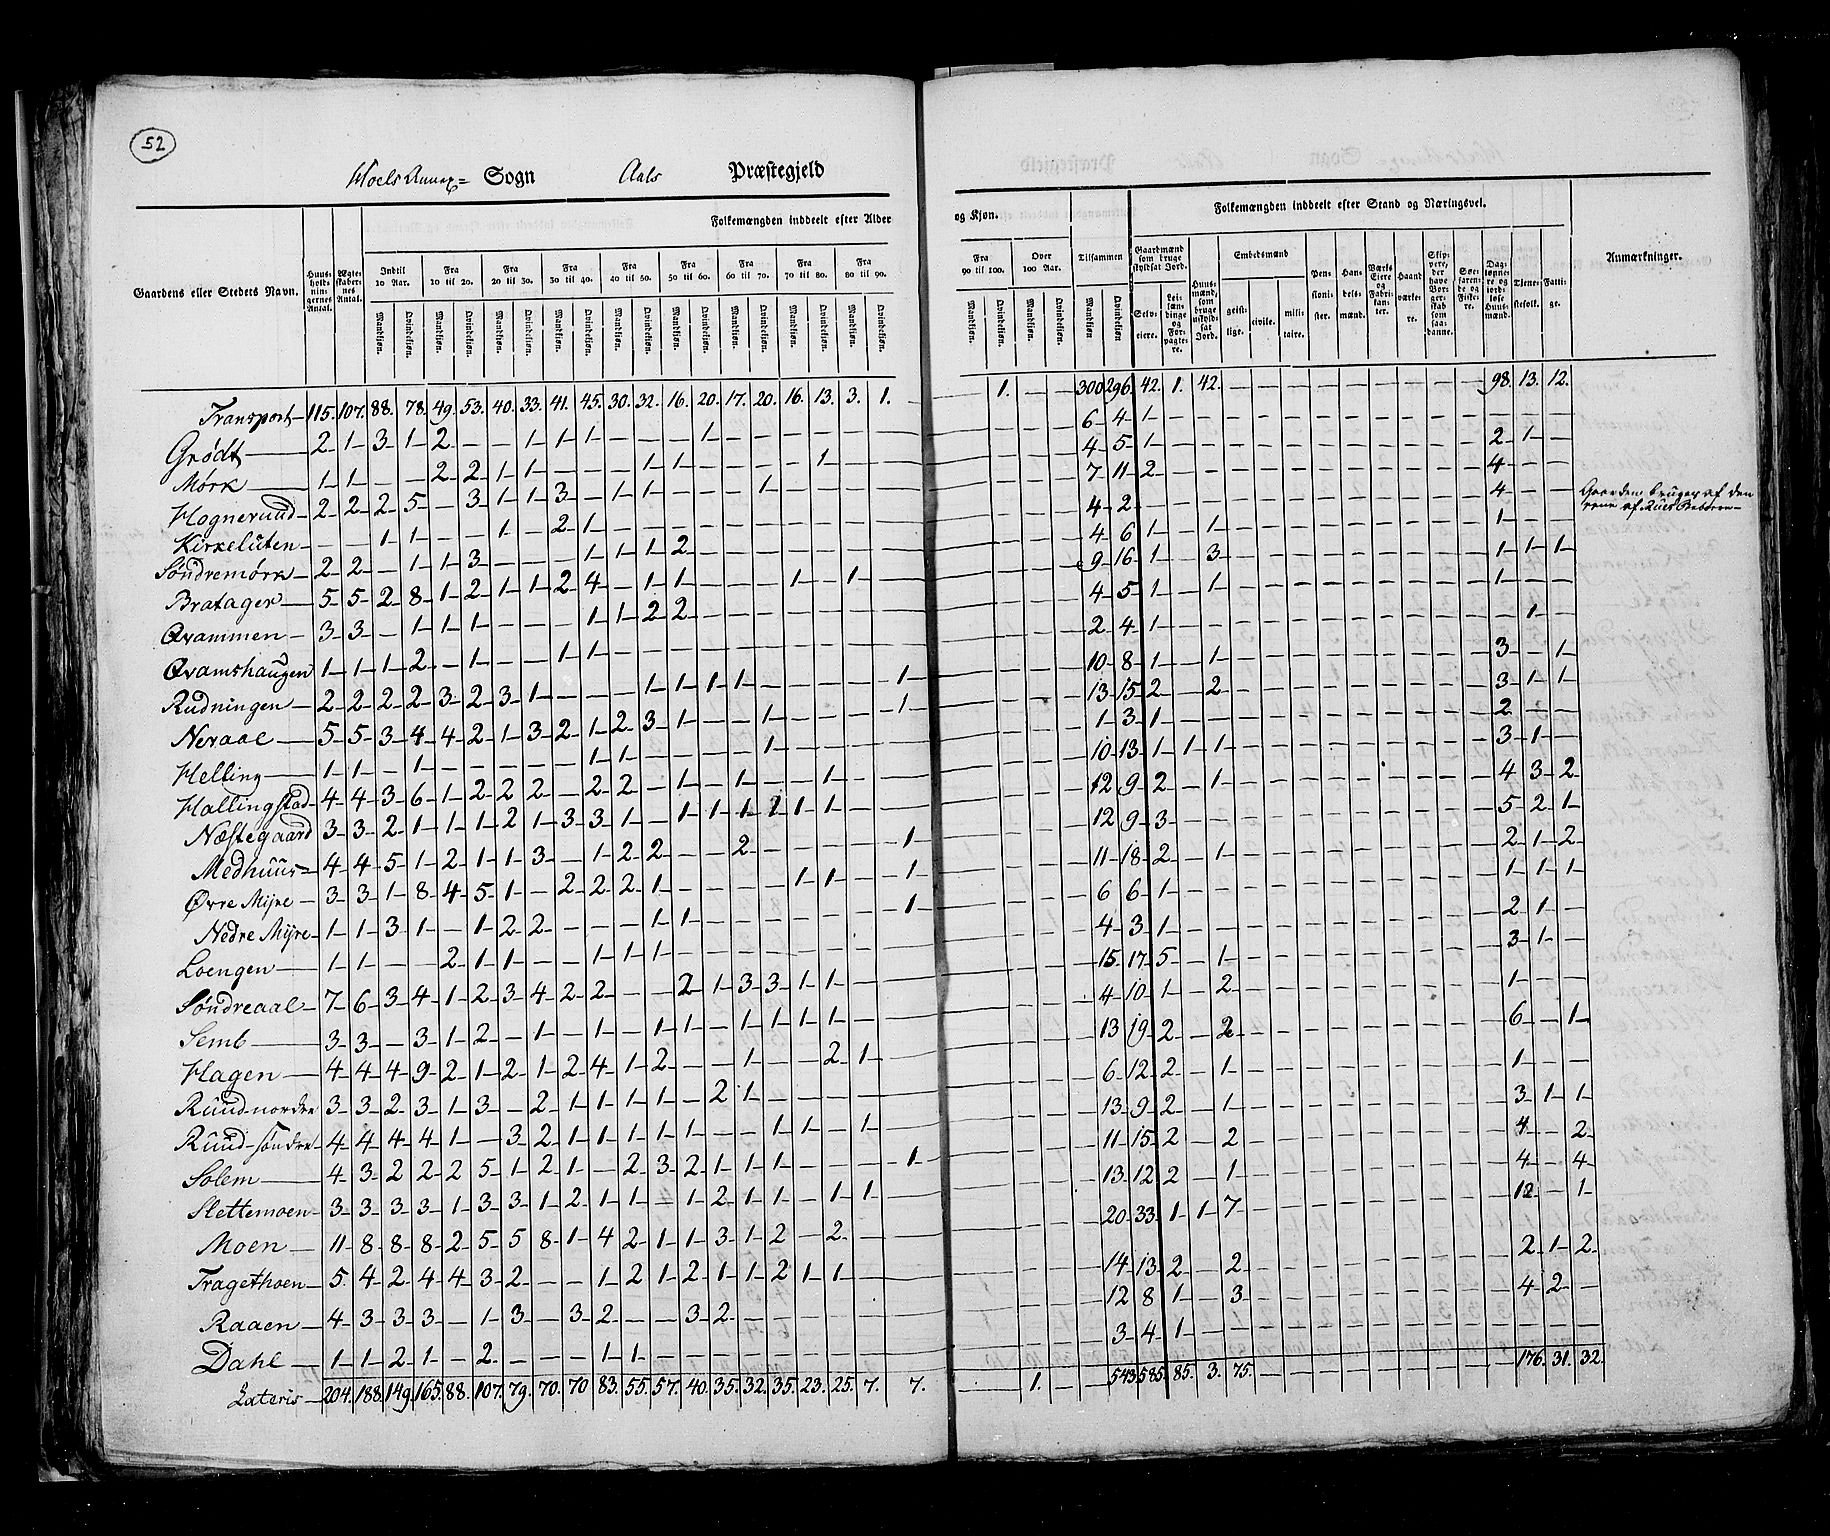 52
Hoels Annex= Sogn Aals Præstegjeld
Gaardens eller Stedets Navn. Huus- holdnin- gernes Antal. Ægte- skaber- nes Antal. Folkemængden inddeelt efter Alder og Kjøn. Folkemængden inddeelt efter Stand og Næringsvei. Anmærkninger.
Indtil 10 Aar. Fra 10 til 20. Fra 20 til 30. Fra 30 til 40. Fra 40 til 50. Fra 50 til 60. Fra 60 til 70. Fra 70 til 80. Fra 80 til 90. Fra 90 til 100. Over 100 Aar. Tilsammen
Mandkjøn. Qvindekjøn.
Gaardmænd som bruge skyldsat Jord. Selv- eiere. Lei- lændinge og For- pagte- re. Huus- mænd, som bruge uskyld- sat Jord. Embedsmænd geist- lige. civile. mili- taire. Pen- sioni- ster. Han- dels- mænd. Værks Eiere og Fabri- kan- ter. Haand værke- re. Skip- pere, der have Bor- ger- skab som saa- danne. Søe- faren- de og Fiske- re. Dag- lønne- re og jord- løse Huus- mænd. Tjene- stefolk. Fatti- ge.
Transport 115. 107. 88. 78. 49. 53. 40. 33. 41. 45. 30. 32. 16. 20. 17. 20. 16. 13. 3. 1. — 1. — — 300 296. 42. 1. 42. — — — — — — — — — 98. 13. 12.
Grødt 2 1 3 1 2 — — 1 1 1 — — — 1 — — — — — — 6 4 1
Mørk 1 1 — — 2 2 1 1 — — — 1 1 — — — — 1 — — 4 5 1 2 1 —
Hognerund 2 2 2 5 — 3 1 1 3 — 1 1 — — — 1 — — — — 7 11 2 4 — —
Kirkelüten — — 1 1 — — 1 — 2 1 — — — — — — — — — — 4 2 — 4 — — Gaarden bruges af den
Søndremørk 2 2 — 1 1 3 — — — 1 1 1 2 — — — — — — — 4 6 1 — 1 1 — —
Bratager 5 5 2 8 1 2 1 1 2 4 — 1 1 — — — 1 — 1 — 9 16 1 — 3 1 1 1
Qvammen 3 3 — 1 1 1 — — — 1 1 2 2 — — — — — — — 4 5 1 — 1 1 — —
Qvamshaugen 1 1 1 2 — 1 — — 1 1 — — — — — — — — — — 2 4 1 — 1 —
Rudningen 2 2 2 2 3 2 3 1 — — — 1 1 1 1 — — — — 1 10 8 1 — 1 3 — 1
Neraal 5 5 3 4 4 2 1 3 2 1 2 3 1 — — 1 — — — 1 13 15 2 — 2 3 1 1
Helling 1 1 — 1 — — — — — 1 1 — — — — 1 — — — — 1 3 1 2 — —
Hallingstad 4 4 3 6 1 2 2 2 — 2 2 — 1 — 1 — — 1 — — 10 13 1 1 1 3 1 —
Næstegaard 3 3 2 1 1 1 2 1 3 3 1 — 1 1 1 1 1 1 — — 12 9 2 — 1 4 3 2
Medhuus= 4 4 5 1 2 1 1 3 — 1 2 2 — — 2 — — — — 1 12 9 3 5 2 1
Øvre Mijre 3 3 1 8 4 5 1 — 2 2 2 1 — — — — 1 1 — 1 11 18 2 — 1 2 1 2
Nedre Mijre 1 1 3 1 — 1 2 2 — — — 1 1 — — — — — — 1 6 6 1 1 1 1
Loengen 1 1 — — 2 1 1 — — 1 1 1 — — — — — — — — 4 3 1 2 1 —
Søndreaal 7 6 3 4 1 2 3 4 2 2 — — 2 1 3 3 1 1 — — 15 17 5 — 1 3 1 —
Semb 3 3 — 3 1 2 — 1 — 1 — 1 1 — 1 1 1 1 — — 4 10 1 — 2 1 — —
Hagen 4 4 4 9 2 1 2 1 2 4 1 2 — — 1 — — 2 1 — 13 19 2 — 2 6 — 1
Ruud nordre 3 3 2 3 1 3 — 2 1 1 1 1 — 2 1 — — — — — 6 12 2 — 1 1 — —
Ruud søndre 4 4 4 4 1 — 3 2 1 1 1 1 1 — — 1 1 — 1 — 13 9 2 — 1 3 1 1
Solem 4 3 2 2 2 5 1 2 1 — 2 3 2 1 1 1 — — — 1 11 15 2 — 2 4 — 2
Slettemoen 3 3 3 3 1 3 3 1 2 1 1 — 1 2 1 1 — 1 1 — 13 12 2 — 1 4 — 4
Moen 11 8 8 8 2 5 5 8 1 4 2 1 1 3 1 2 — 2 — — 20 33 1 1 7 12 — 1
Tragethoen 5 4 2 4 4 3 2 — — 1 2 1 2 1 1 2 1 1 — — 14 13 2 — 2 2 1 2
Raaen 4 3 3 3 — 1 3 — 3 2 — — 3 2 — — — — — — 12 8 1 — 3 4 2 —
Dahl 1 1 2 1 — 2 — — — 1 1 — — — — — — — — — 3 4 1 — — —
Lateris 204. 188. 149. 165. 88. 107. 79. 70. 70 83. 55. 57. 40. 35. 32. 35. 23. 25. 7. 7. — 1. — — 543 585. 85. 3. 75. — — — — — — — — — 176. 31. 32.